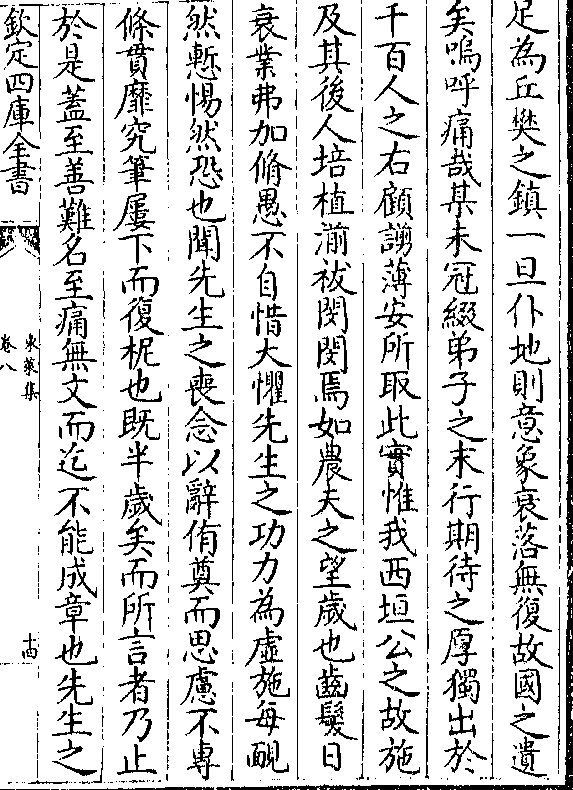 足為丘樊之鎮一旦仆地則意象衰落無復故國之遺
矣嗚呼痛哉某未冠綴弟子之末行期待之厚獨出於
千百人之右顧謭薄安所取此實惟我西垣公之故施
及其後人培植湔祓閔閔焉如農夫之望歲也齒髮日
衰業弗加脩愚不自惜大懼先生之功力為虛施每靦
然慙惕然恐也聞先生之喪念以辭侑奠而思慮不專
條貫靡究筆屢下而復柅也既半歲矣而所言者乃止
於是蓋至善難名至痛無文而迄不能成章也先生之
欽定四庫全書
東萊集
卷八
十四